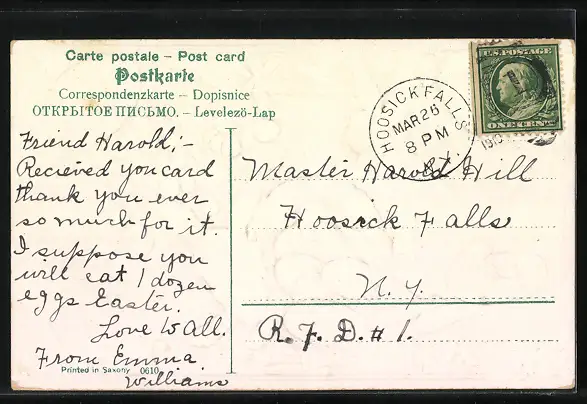 Carte postale – Post card
Postkarte
Correspondenzkarte – Dopisnice
ОТКРЫТОЕ ПИСЬМО. – Levelezö-Lap
U.S. POSTAGE
ONE CENT
HOOSICK FALLS
MAR 26
8 PM
N.Y.
1910
Friend Harold;-
Recieved you card
thank you ever
so much for it.
I suppose you
will eat 1 dozen
eggs Easter.
Love to all.
From Emma
Williams
Master Harold Hill
Hoosick Falls
N. Y.
R. F. D. # 1.
Printed in Saxony 0610